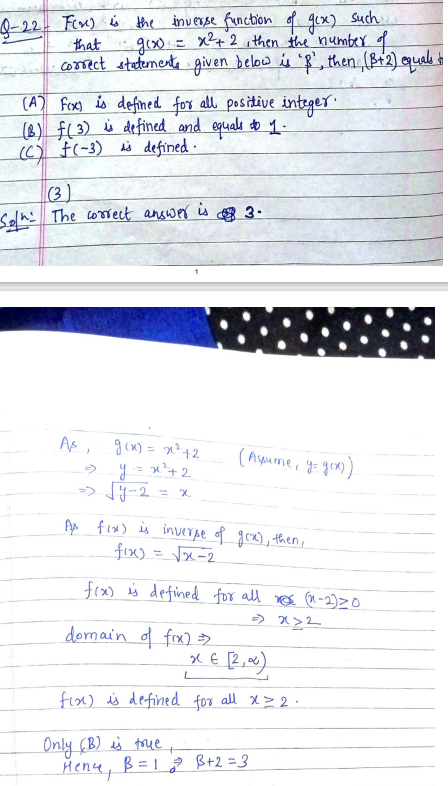 Q-22 F(x) is the inverse function of g(x) such
that g(x) = x²+2, then the number of
correct statements given below is 'β', then, (β+2) equals
(A) F(x) is defined for all positive integer.
(B) f(3) is defined and equals to 1.
(C) f(-3) is defined.
(3)
Soln:- The correct answer is 3.
1
As, g(x) = x²+2 (Assume, y=g(x))
⇒ y = x²+2
⇒ √y-2 = x
As f(x) is inverse of g(x), then,
f(x) = √x-2
f(x) is defined for all (x-2)≥0
⇒ x≥2
domain of f(x) ⇒
x ∈ [2,∞)
f(x) is defined for all x ≥ 2.
Only (B) is true,
Hence, β=1 ⇒ β+2=3